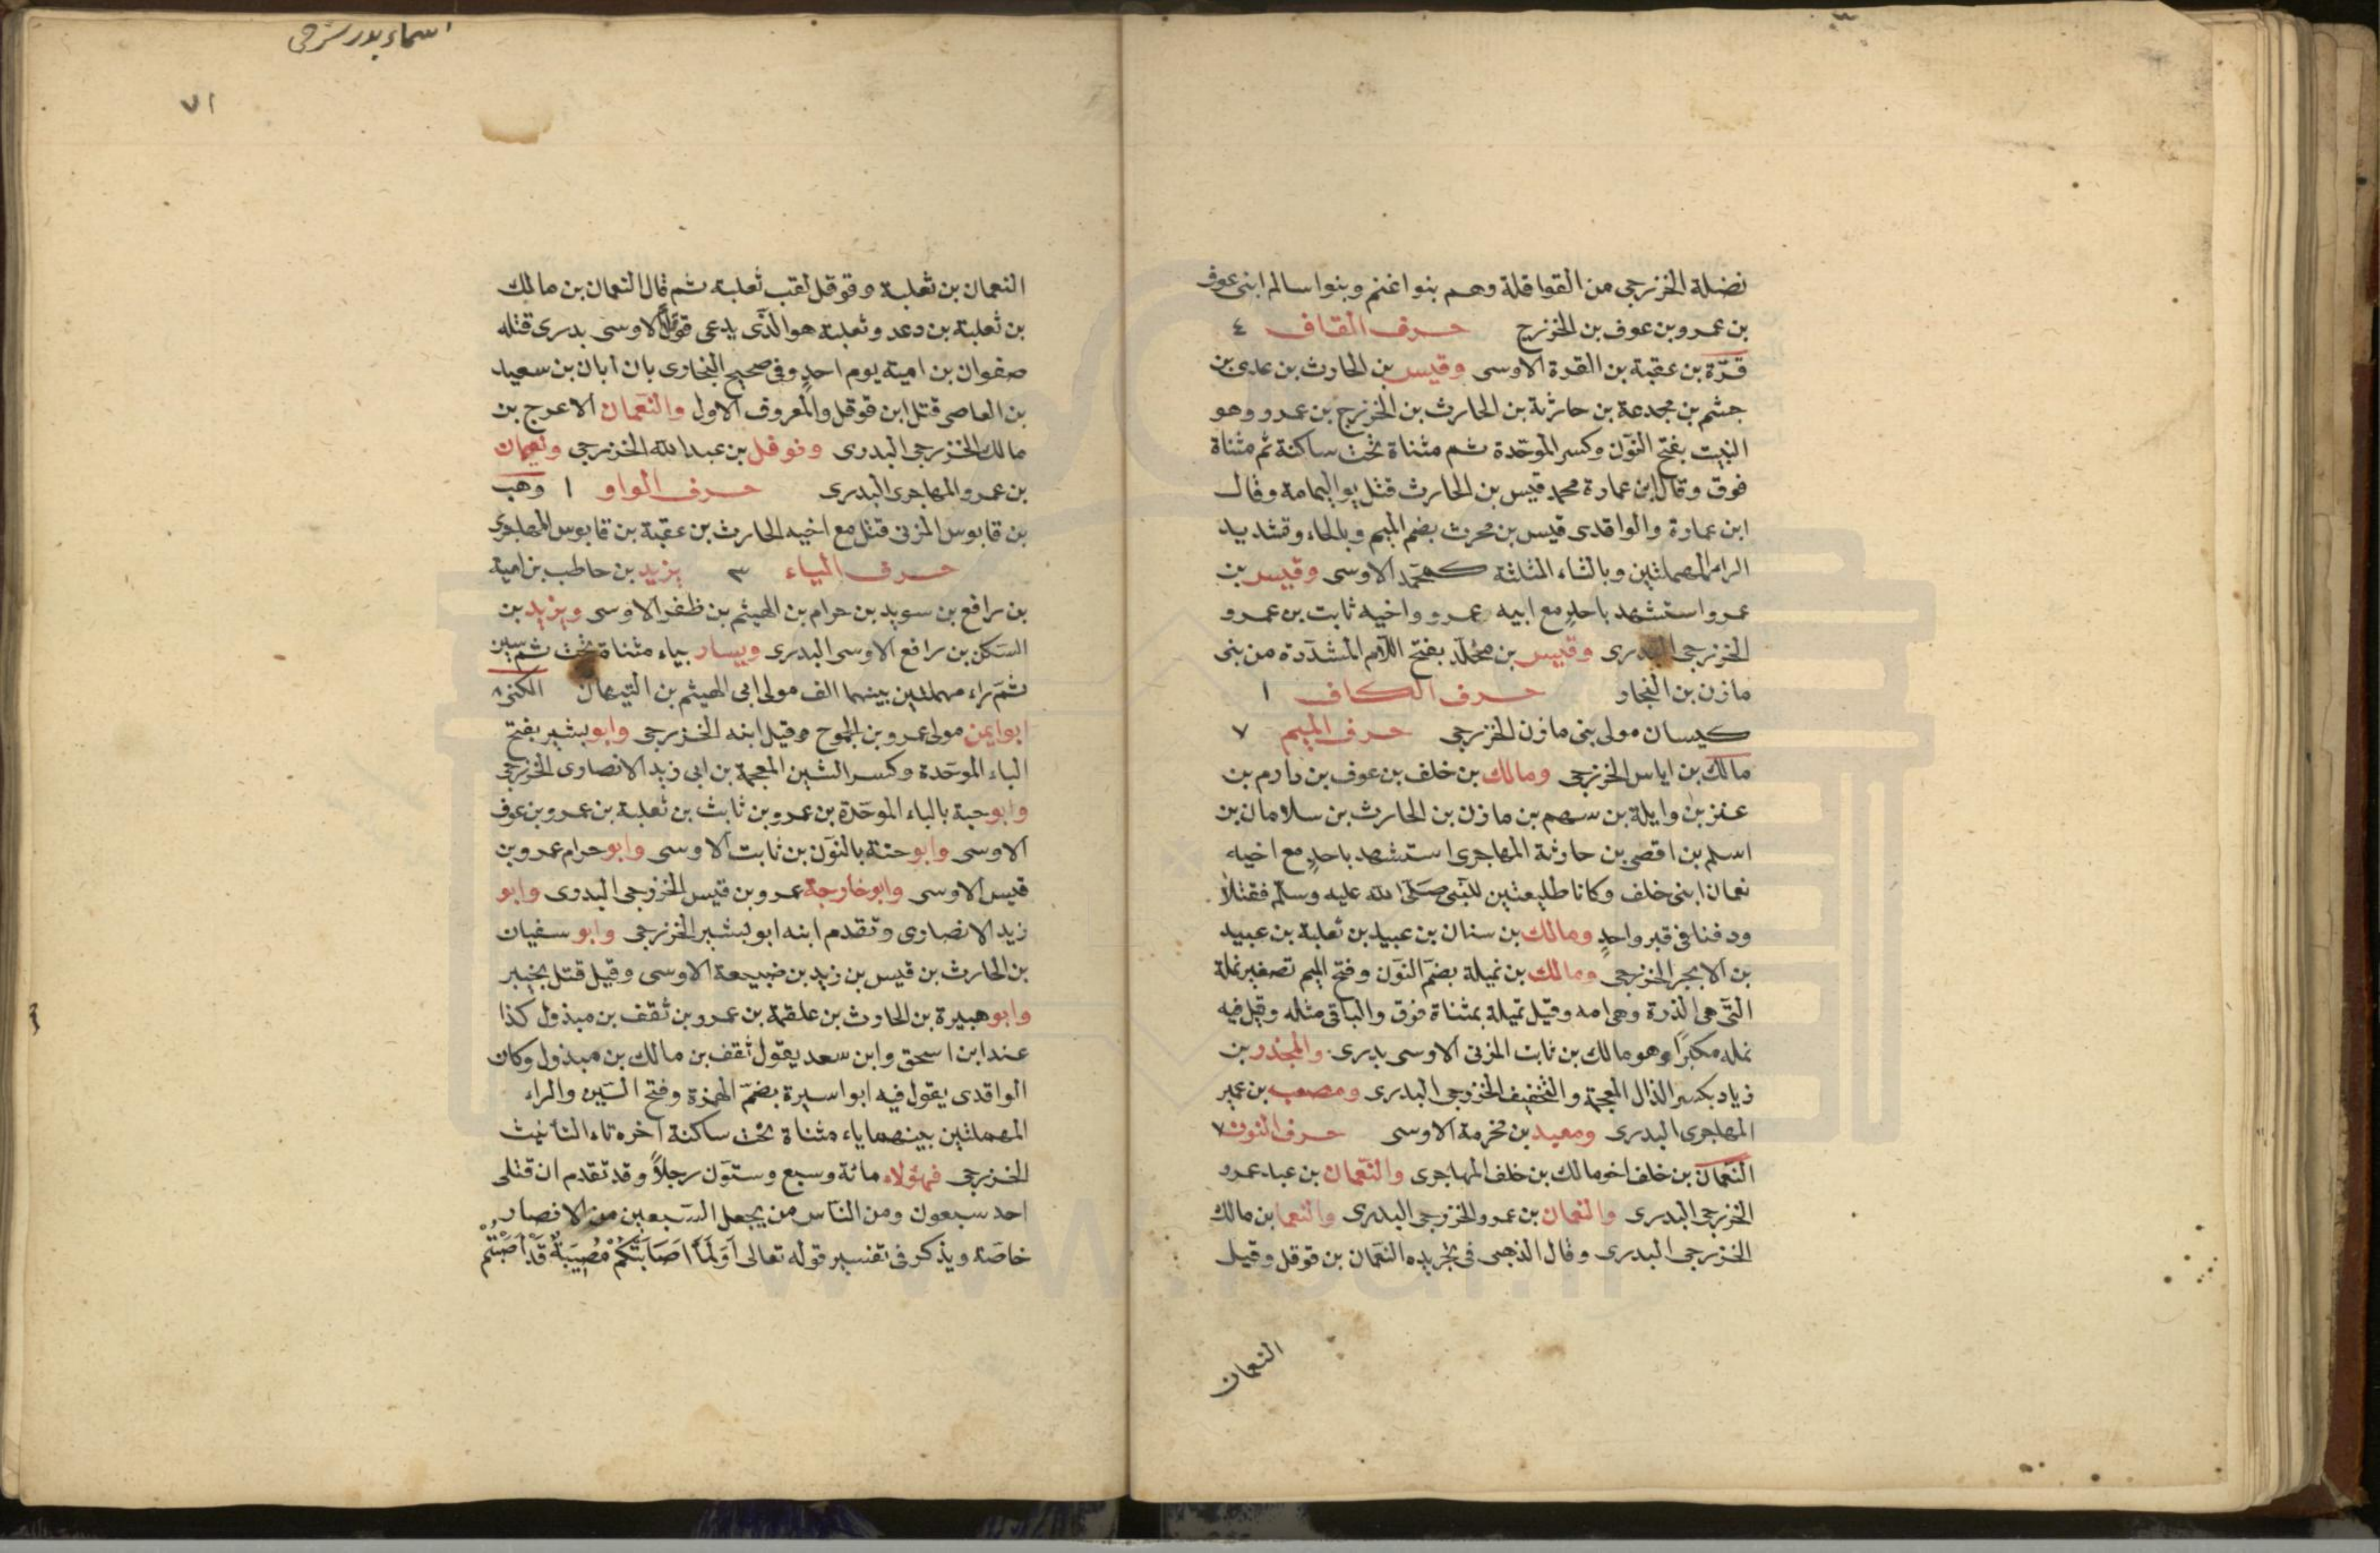 نضلة الخزرجى من القواقلة وهم بنوا غنم وبنوا سالم ابنى عوف
بن عمرو بن عوف بن الخزرج حرف القاف ٤
قرّة بن عقبة بن القرة الاوسى وقيس بن الحارث بن عدى بن
جشم بن مجدعة بن حارثة بن الحارث بن الخزرج بن عمرو وهو
النبيت بفتح النّون وكسر الموحّدة ثم مثناة تحت ساكنة ثم مثناة
فوق وقال ابن عمارة محمد قيس بن الحارث قتل يوم اليمامة وقال
ابن عمارة والواقدى قيس بن محرث بضم الميم وبالحاء وتشديد
الراء المهملتين وبالثاء المثلثة كمحمّد الاوسى وقيس بن
عمرو استشهد باحدٍ مع ابيه عمرو واخيه ثابت بن عمرو
الخزرجى البدرى وقيس بن مخلّد بفتح اللّام المشدّدة من بنى
مازن بن النجار حرف الكاف ١
كيسان مولى بنى مازن الخزرجى حرف الميم ٧
مالك بن اياس الخزرجى ومالك بن خلف بن عوف بن دارم بن
عنز بن وايلة بن سهم بن مازن بن الحارث بن سلامان بن
اسلم بن اقصى بن حارثة المهاجرى استشهد باحدٍ مع اخيه
نعمان ابنى خلف وكانا طليعتين للنّبى صلّى الله عليه وسلّم فقتلا
ودفنا فى قبر واحدٍ ومالك بن سنان بن عبيد بن ثعلبة بن عبيد
بن الابجر الخزرجى ومالك بن نميلة بضمّ النّون وفتح الميم تصغير نملة
التّى هى الذرة وهى امه وقيل تميلة بمثناة فوق والباقى مثله وقيل فيه
نمله مكبرًا وهو مالك بن ثابت المزنى الاوسى بدرى والمجذر بن
زياد بكسر الذال المعجمة والتخفيف الخزرجى البدرى ومصعب بن عمير
المهاجرى البدرى ومعبد بن مخرمة الاوسى حرف النون ٧
النّعمان بن خلف اخو مالك بن خلف المهاجرى والنّعمان بن عبد عمرو
الخزرجى البدرى والنعمان بن عمرو الخزرجى البدرى والنعما بن مالك
الخزرجى البدرى وقال الذهبى فى تجريده النّعمان بن قوقل وقيل
النعمان
اسماء بدر شرحى
٧١
النعمان بن ثعلبة وقوقل لقب ثعلبة ثم قال النعمان بن مالك
بن ثعلبة بن دعد وثعلبة هو الّذى يدعى قوقلًا الاوسى بدرى قتله
صفوان بن امية يوم احدٍ وفى صحيح البخارى بان ابان بن سعيد
بن العاصى قتل ابن قوقل والمعروف الاول والنّعمان الاعرج بن
مالك الخزرجى البدرى ونوفل بن عبد الله الخزرجى ونعيمان
بن عمرو المهاجرى البدرى حرف الواو ١ وهب
بن قابوس المزنى قتل مع اخيه الحارث بن عقبة بن قابوس المهاجرى
حرف الياء ٣ يزيد بن حاطب بن امية
بن رافع بن سويد بن حرام بن الهيثم بن ظفر الاوسى ويزيد بن
السّكن بن رافع الاوسى البدرى ويسار بياء مثناة تحت ثم سين
ثمّ راء مهملتين بينهما الف مولى ابى الهيثم بن التيهان الكنى ٨
ابو ايمن مولى عمرو بن الجموح وقيل ابنه الخزرجى وابو بشير بفتح
الباء الموحّدة وكسر الشين المعجمة بن ابى زيد الانصارى الخزرجى
وابو حبة بالباء الموحّدة بن عمرو بن ثابت بن ثعلبة بن عمرو بن عوف
الاوسى وابو حنة بالنّون بن ثابت الاوسى وابو حرام عمرو بن
قيس الاوسى وابو خارجة عمرو بن قيس الخزرجى البدرى وابو
زيد الانصارى وتقدم ابنه ابو بشير الخزرجى وابو سفيان
بن الحارث بن قيس بن زيد بن ضبيعة الاوسى وقيل قتل بخيبر
وابو هبيرة بن الحارث بن علقمة بن عمرو بن ثقف بن مبذول كذا
عند ابن اسحق وابن سعد يقول ثقف بن مالك بن مبذول وكان
الواقدى يقول فيه ابو اسيرة بضمّ الهمزة وفتح السّين والراء
المهملتين بينهما ياء مثناة تحت ساكنة آخره تاء التأنيث
الخزرجى فهؤلاء مائة وسبع وستّون رجلاً وقد تقدم ان قتلى
احد سبعون ومن النّاس من يجعل السّبعين من الانصار
خاصّة ويذكر فى تفسير قوله تعالى أَوَلَمَّا اَصَابَتْكُمْ مُصِيبَةٌ قَدْ أَصَبْتُمْ